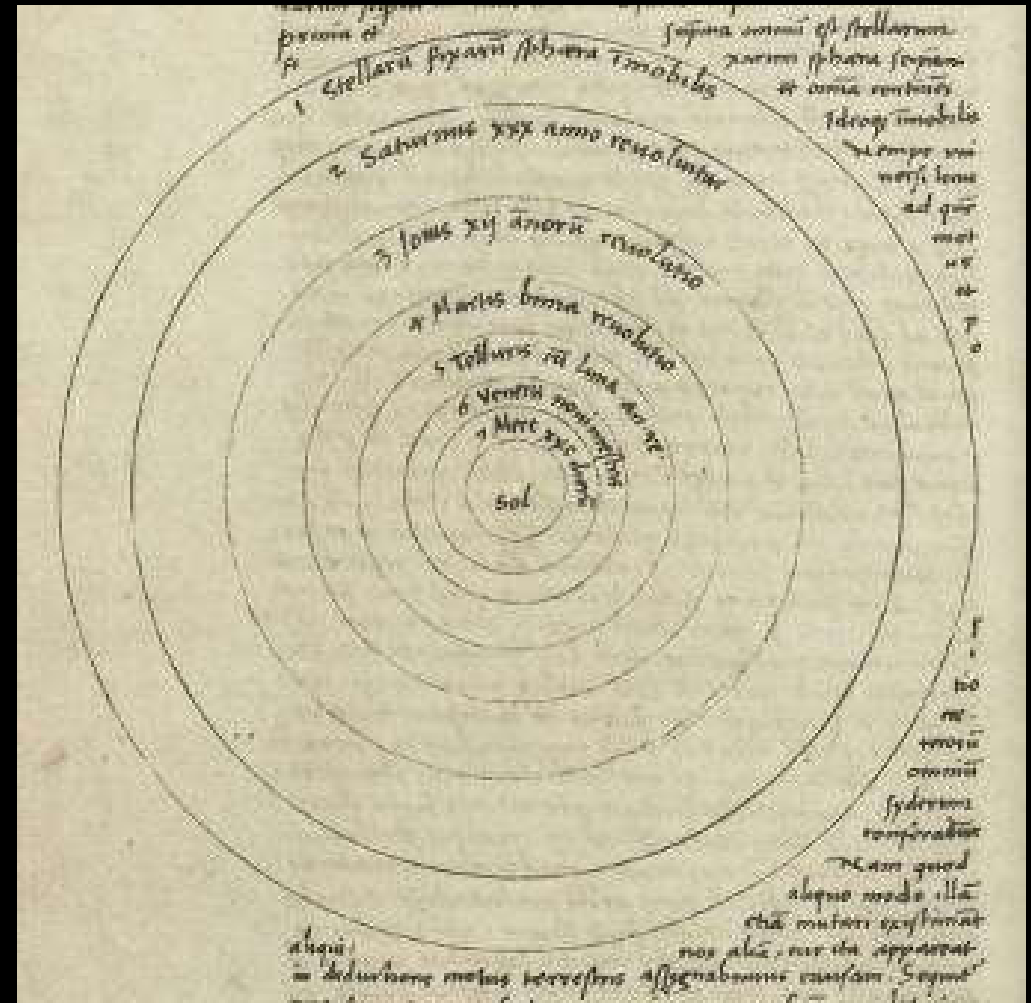 prima et
suprema omnium est stellarum
fi
xarum sphæra seipsam
et omnia continens
Ideoqꝫ īmobilis
Nempe uni
uersi locus
ad quē
mot
us
et
p
o
1 Stellarū fixarū sphæra īmobilis
2 Saturnus xxx anno reuoluitur
3 Iouis xij annorū reuolutio
4 Martis bima reuolutio
5 Telluris cū luna an re
6 Veneris nonimestris
7 Merc xxx dierū
Sol
r
i
tio
ne
terorū
omniū
syderum
conferatur
Nam quod
aliquo modo illā
etiā mutari existimāt
aliqui
nos aliā, cur ita appareat
in deductione motus terrestris assignabimus causam. Sequitur